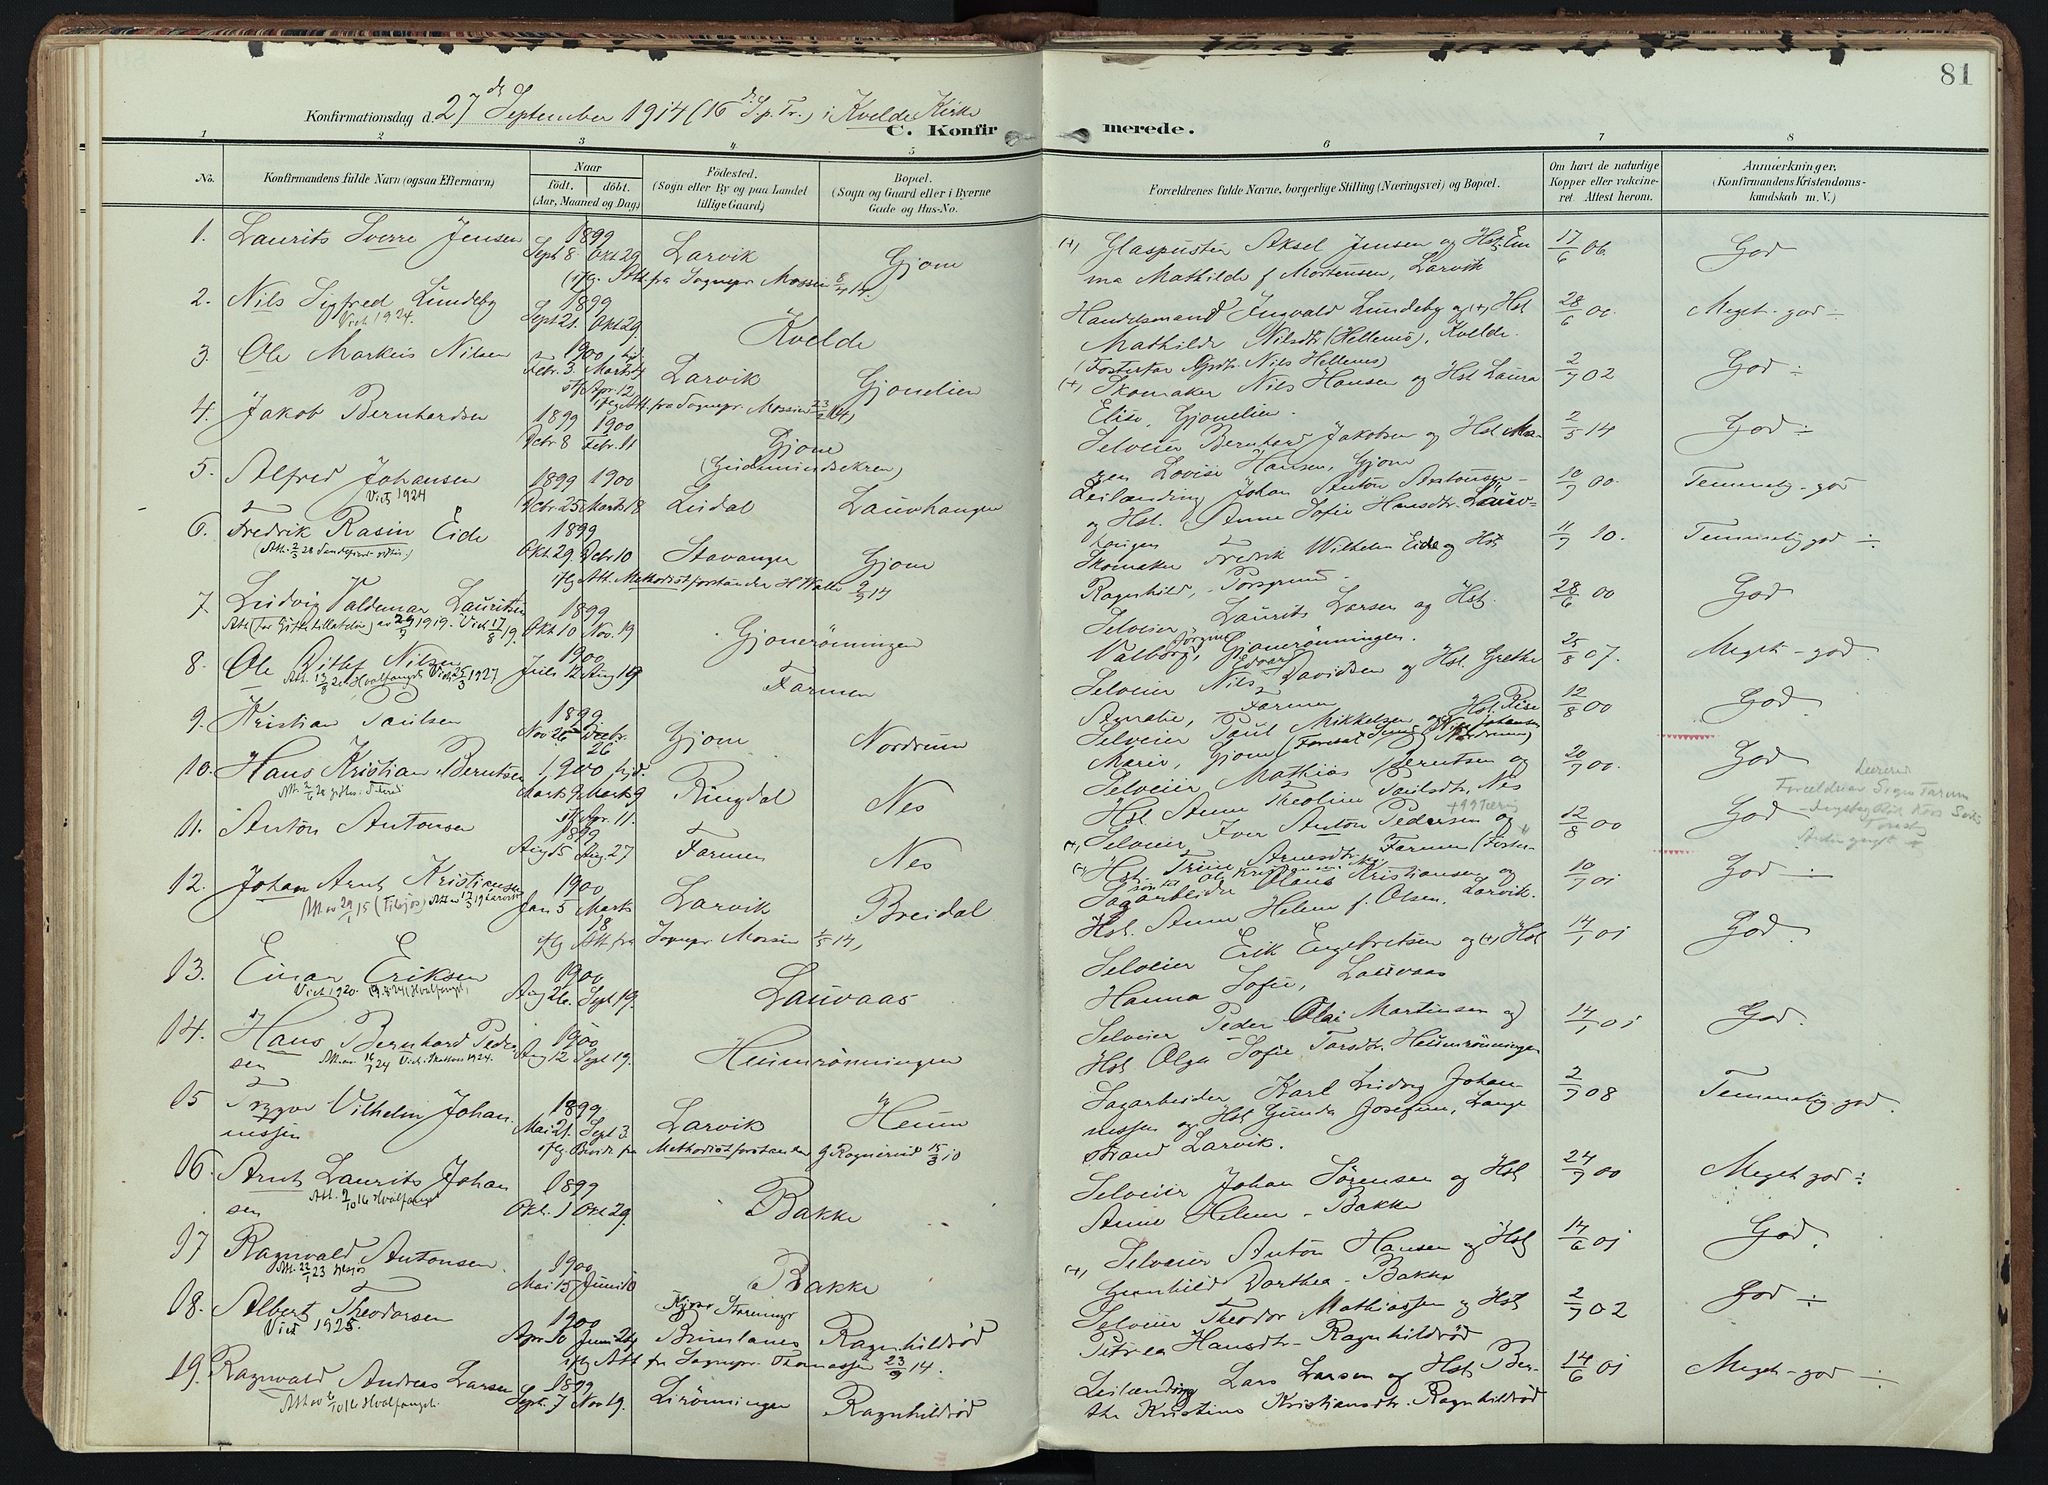 81
Konfirmationsdag d. 27de September 1914 (16de S.p.Tr.) i Kvelde Kirke
C. Konfirmerede.
1 2 3 4 5 6 7 8
No.
Konfirmandens fulde Navn (ogsaa Efternavn)
Naar
født. døbt.
(Aar, Maaned og Dag.)
Fødested.
(Sogn eller By og paa Landet
tillige Gaard.)
Bopæl.
(Sogn og Gaard eller i Byerne
Gade og Hus-No.
Forældrenes fulde Navne, borgerlige Stilling (Næringsvei) og Bopæl.
Om havt de naturlige
Kopper eller vakcine-
ret. Attest herom.
Anmærkninger.
(Konfirmandens Kristendoms-
kundskab m. V.)
1. Laurits Sverre Jensen 1899 Sept 8. Okt 29 Larvik Gjone
(+) Glaspuster Aksel Jensen og Hst. Em
ma Mathilde f. Mortensen, Larvik 17/6 06. God
iflg. Att. fra Sognepr. Mossin 8/7 14.
2. Nils Sigfred Lundeby 1899 Sept 21. Okt 29. Kvelde
Viet 1924.
Handelsmand Ingvald Lundeby og (+) Hst
Mathilde Nilsdtr (Hellenes), Kvelde. 28/6 00. Meget-god ÷
(Fosterfar Gpdr. Nils Hellenes)
3. Ole Markus Nilsen 1900 Febr. 3. Marts 4 st. Apr. 12 Larvik Gjonelien
(+) Skomaker Nils Hansen og Hst Laura
Elise, Gjonelien. 2/7 02 God ÷
iflg. Att. fra Sognepr. Mossin
4. Jakob Bernhardsen 1899 Debr 8 1900 Febr. 11 Gjone
Selveier Bernhard Jakobsen og Hst. Ma-
ren Lovise Hansen, Gjone 2/5 14 God ÷
5. Alfred Johansen 1899 Debr. 25 1900 Marts 18 Lisdal Lauvhaugen
Viet 1924
Leilænding Johan Anton Antonsen
og Hst. Anne Sofie Hansdtr. Lauv-
haugen 10/7 00. Temmelig-god
6. Fredrik Rasin Eide 1899 Okt 29. Debr 10 Stavanger Gjone
Skomaker Fredrik Wilhelm Eide og Hst
Ragnhild, - Porsgrund. 11/7 10. Temmelig god ÷
iflg. Att. Methodistforstander H Walle 2/9 14
7. Ludvig Valdemar Lauritsen 1899 Okt 10 Nov. 19 Gjonerønningen
Selveier Laurits Larsen og Hst.
Valborg Jørgine, Gjonerønningen. 28/6 00 God
8. Ole Ditlef Nilsen 1900 Juli 12 Aug 19 Farmen
Selveier Nils Edvard Davidsen og Hst. Grethe
Agnatie, Farmen 25/8 07. Meget-god.
9. Kristian Paulsen 1899 Nov 26 Debr. 26 Gjone Nordrum
Selveier Paul Mikkelsen og Hst. Elise
Marie, Gjone 12/8 00 God
10. Hans Kristian Berntsen 1900 Marts 9 Marts 9 st. Apr. 11. Ringdal Nes
Selveier Mathias Berntsen og
Hst Anne Theoline Paulsdtr, Nes 20/7 00. God
11. Anton Antonsen 1899 Aug 15 Aug. 27 Farmen Nes
(+) Selveier Iver Anton Pedersen og
(+) Hst. Trine Arnesdtr. Farmen (Foster- 12/8 00 God
12. Johan Arnt Kristiansen 1900 Jan 5 Marts 18 Larvik Breidal
Sagarbeider Olaus Kristiansen og
Hst. Anne Helene f. Olsen, Larvik. 10/7 01 God ÷
iflg. Att. fra Sognepr. Mossin 1/5 14,
13. Einar Eriksen 1900 Aug 26. Sept. 19. Lauvaas
Selveier Erik Engebretsen og (+) Hst
Hanna Sofie, Lauvaas 14/1 01 God.
14. Hans Bernhard Peder
sen 1900 Aug 12 Sept 19. Heumrønningen
Selveier Peder Olai Martinsen og
Hst Olga Sofie Larsdtr. Heumrønningen 14/1 01 God.
15 Trygve Vilhelm Johan
nessen 1899 Mai 21. Sept 3. Larvik Heum
Sagarbeider Karl Ludvig Johan-
nessen og Hst Gunda Josefine, Lange
strand Larvik. 2/7 08 Temmelig-god.
iflg. Bevidn. fra Methodistforstander J Ragnerud 15/3 10
16. Arnt Laurits Johan
sen 1899 Okt. 1 Okt 29. Bakke
Att. 2/10 16 Hvalfangst
Selveier Johan Sørensen og Hst
Anne Helene - Bakke 24/7 00 Meget god ÷
17 Ragnvald Antonsen. 1900 Mai 15 Juni 10 Bakke
(+) Selveier Anton Hansen og Hst
Gunhild Dorthea - Bakke 14/6 01 God.
18. Albert Theodorsen 1900 Apr 10 Juni 24 Brunlanes Ragnhildrød
Viet 1925.
Selveier Theodor Mathiassen og Hst
Petrea Hansdtr - Ragnhildrød 2/7 02 God ÷
iflg Att fra Sognepr. Thomassen 23/9 14.
19. Ragnvald Andreas Larsen 1899 Sept. 7 Nov 19. Lirønningen Ragnhildrød
Att av 6/10 16 Hvalfangst.
Leilænding Lars Larsen og Hst. Ber-
the Kristine Kristiansdtr. Ragnhildrød 14/6 01 Meget-god ÷